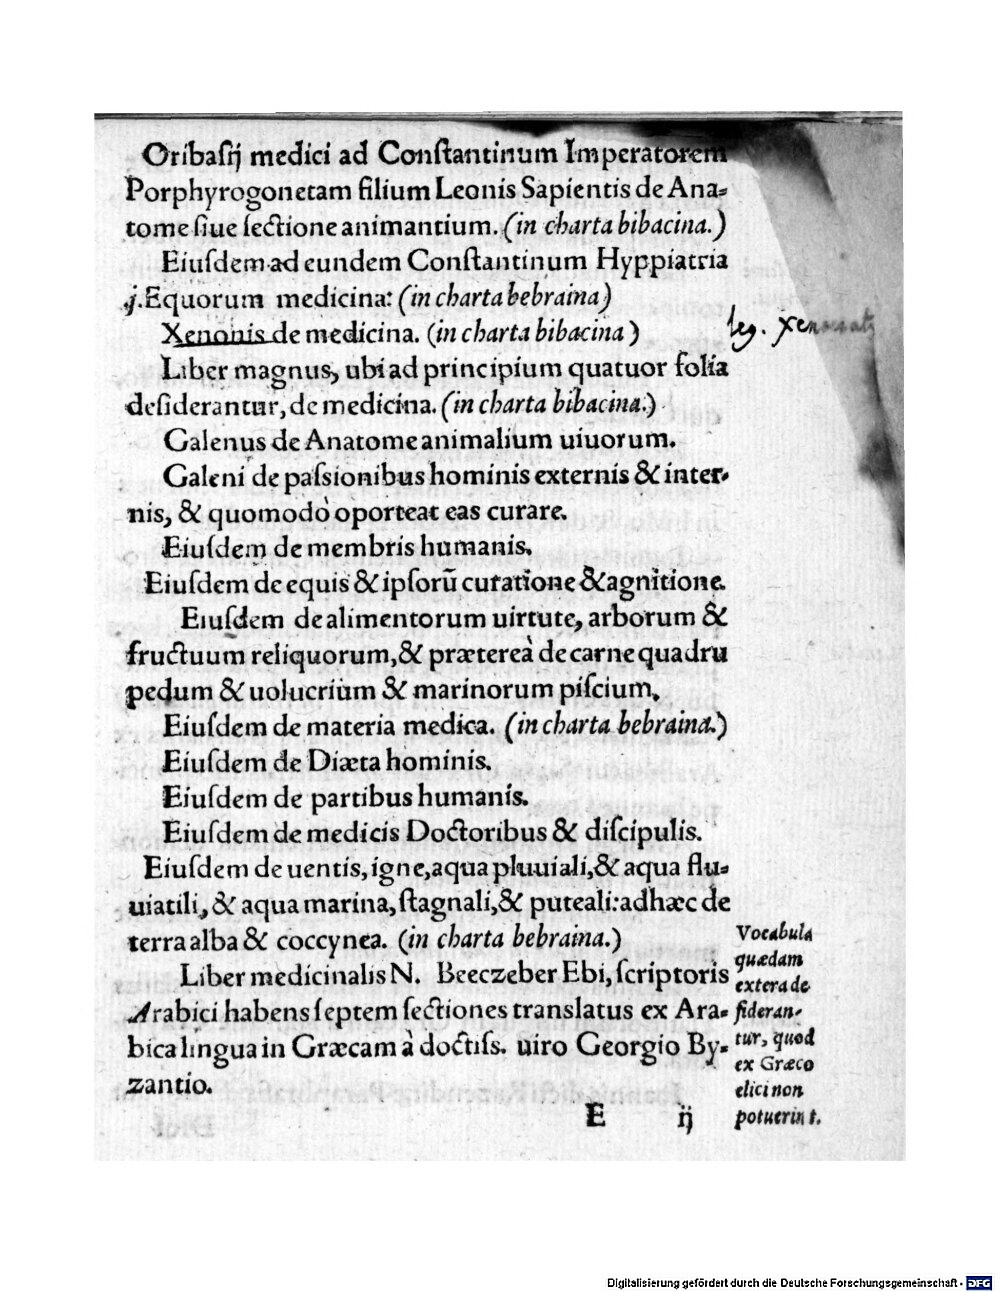 Oribaſij medici ad Conſtantinum Imperatorem
Porphyrogonetam filium Leonis Sapientis de Ana-
tome ſiue ſectione animantium. (in charta bibacina.)
Eiuſdem ad eundem Conſtantinum Hyppiatria
.j. Equorum medicina: (in charta bebraina)
Xenonis de medicina. (in charta bibacina)
leg.
Liber magnus, ubi ad principium quatuor folia
deſiderantur, de medicina. (in charta bibacina.)
Galenus de Anatome animalium uiuorum.
Galeni de paſsionibus hominis externis & inter-
nis, & quomodò oporteat eas curare.
Eiuſdem de membris humanis.
Eiuſdem de equis & ipſorũ curatione & agnitione.
Eiuſdem de alimentorum uirtute, arborum &
fructuum reliquorum, & prætereà de carne quadru
pedum & uolucrium & marinorum piſcium.
Eiuſdem de materia medica. (in charta bebraina.)
Eiuſdem de Diæta hominis.
Eiuſdem de partibus humanis.
Eiuſdem de medicis Doctoribus & diſcipulis.
Eiuſdem de uentis, igne, aqua pluuiali, & aqua flu-
uiatili, & aqua marina, ſtagnali, & puteali: adhæc de
terra alba & coccynea. (in charta bebraina.)
Liber medicinalis N. Beeczeber Ebi, ſcriptoris
Arabici habens ſeptem ſectiones translatus ex Ara-
bica lingua in Græcam à doctiſs. uiro Georgio By-
zantio.
Vocabula
quædam
extera de
ſideran-
tur, quod
ex Græco
elici non
potuerint.
E ij
Digitalisierung gefördert durch die Deutsche Forschungsgemeinschaft - DFG